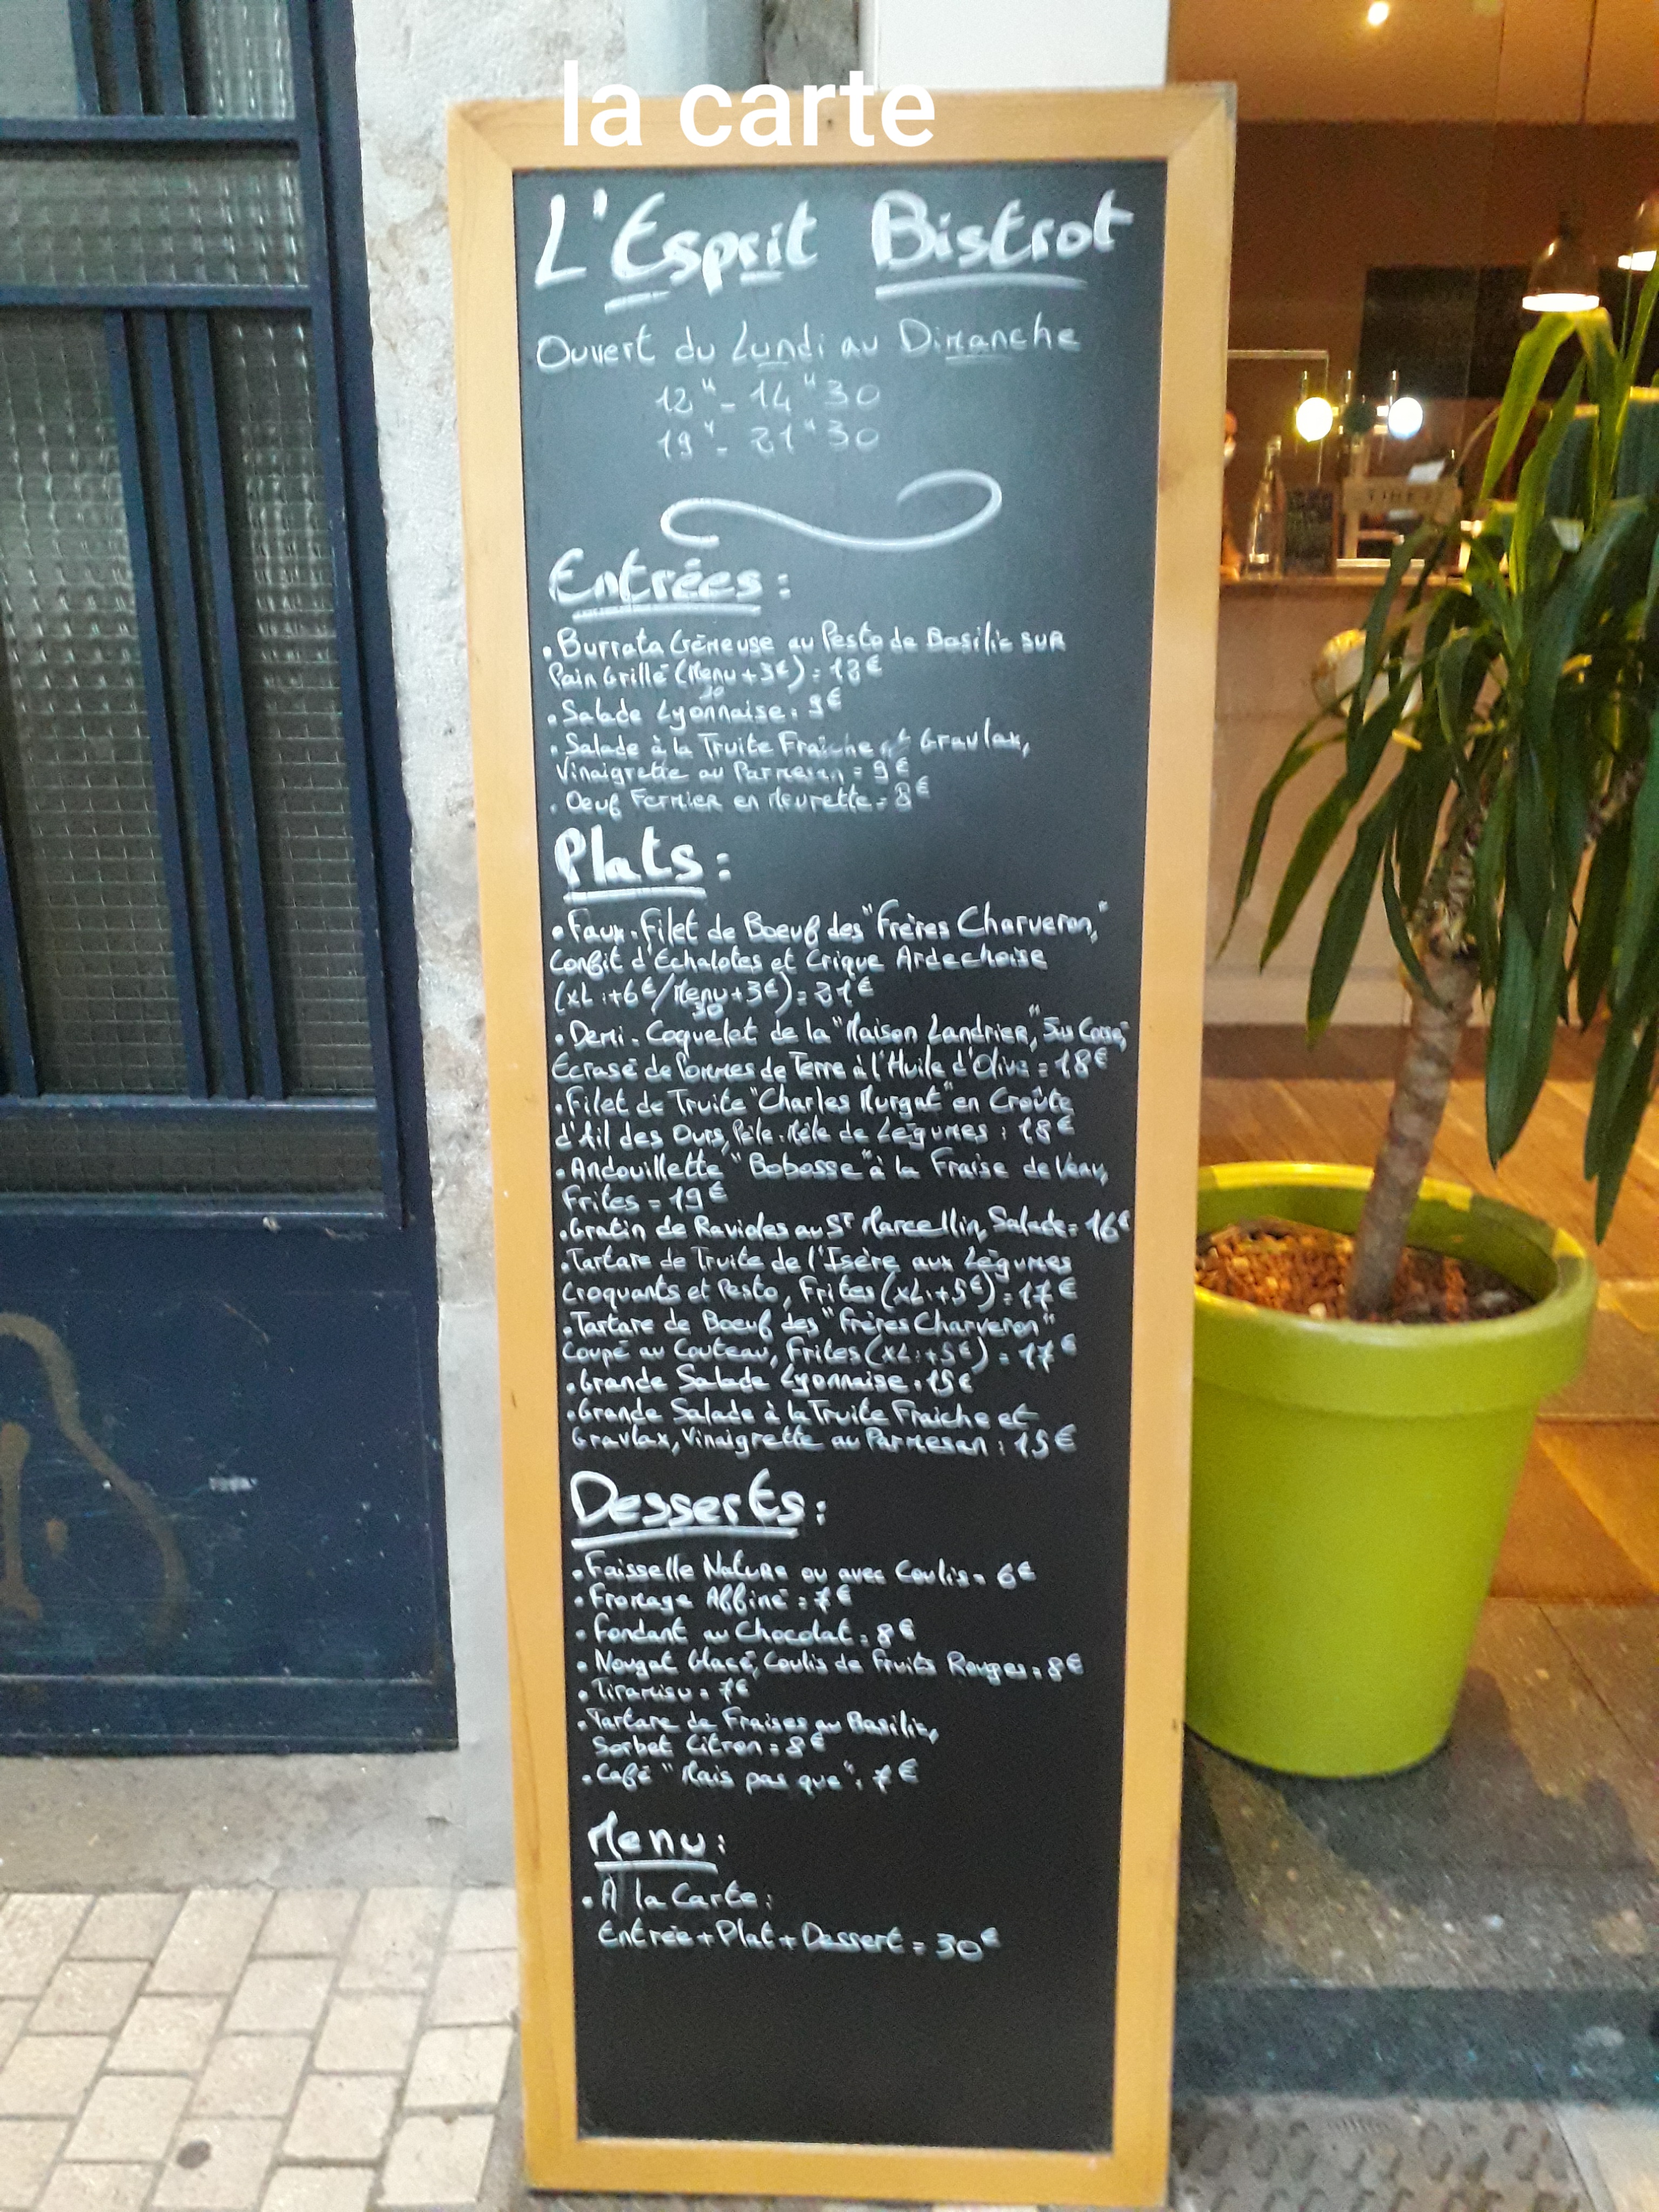 la carte
L'Esprit Bistrot
Ouvert du Lundi au Dimanche
12H - 14H30
19H - 21H30
Entrées :
• Burrata Crémeuse au Pesto de Basilic SUR
Pain Grillé (Menu + 3€) :
30
• Salade Lyonnaise : 9€
• Salade à la Truite Fraîche et Gravlax,
Vinaigrette au Parmesan = 9€
• Oeuf Fermier en Meurette = 8€
Plats :
• Faux-Filet de Boeuf des "Frères Charveron,"
Confit d'Echalotes et Crique Ardechoise
(XL : +6€/Menu + 3€) = 21€
30
• Demi-Coquelet de la "Maison Landrier,"
Ecrasé de Pommes de Terre à l'Huile d'Olive = 18€
• Filet de Truite "Charles Murgat" en Croûte
d'Ail des Ours, Pêle-Mêle de Légumes : 18€
• Andouillette "Bobosse" à la Fraise de Veau,
Frites = 19€
• Gratin de Ravioles au ST Marcellin, Salade = 16€
• Tartare de Truite de l'Isère aux Légumes
Croquants et Pesto, Frites (XL : +5€) = 17€
• Tartare de Boeuf des "Frères Charveron"
Coupé au Couteau, Frites (XL : +5€) = 17€
• Grande Salade Lyonnaise : 15€
• Grande Salade à la Truite Fraiche et
Gravlax, Vinaigrette au Parmesan : 15€
Desserts :
• Faisselle Nature ou avec Coulis = 6€
• Fromage Affiné = 7€
• Fondant au Chocolat : 8€
• Nougat Glacé, Coulis de Fruits Rouges = 8€
• Tiramisu = 7€
• Tartare de Fraises au Basilic,
Sorbet Citron = 8€
• Café "Mais pas que" : 7€
Menu :
• À la Carte :
Entrée + Plat + Dessert = 30€